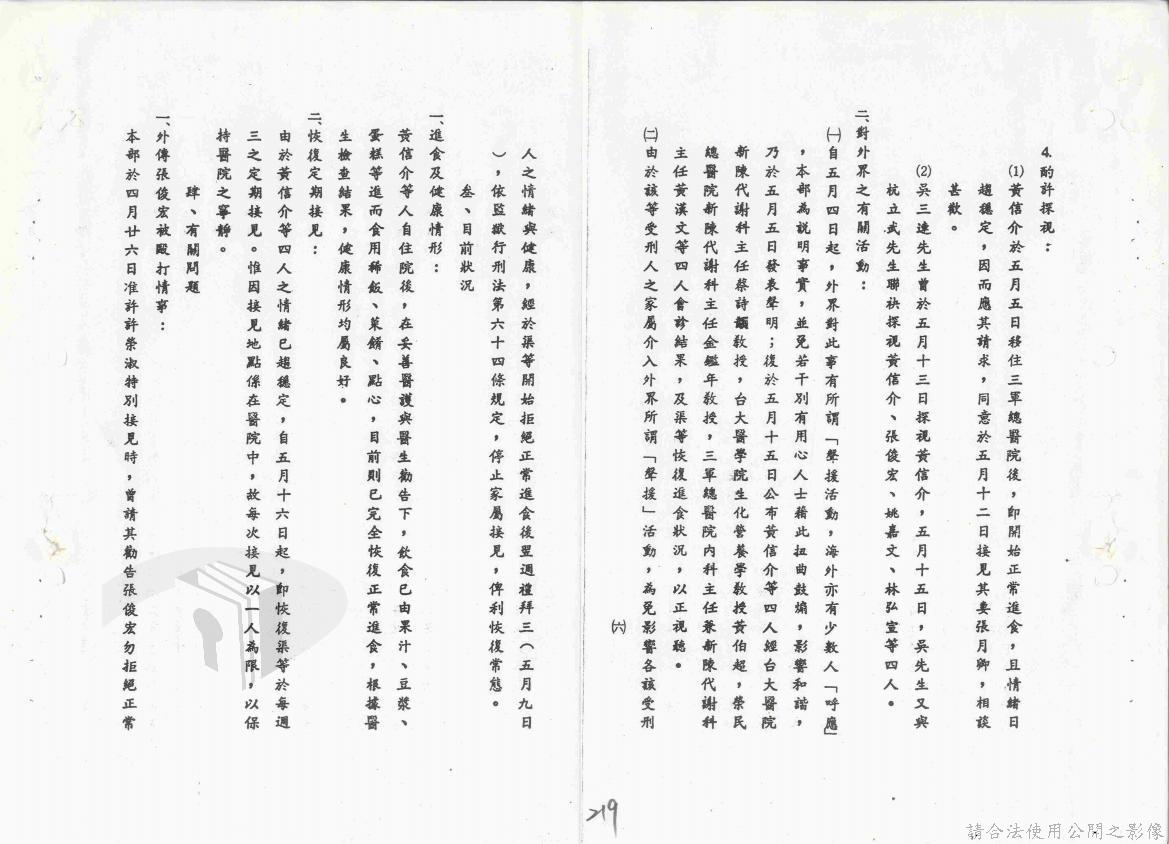 4.酌許探視：
⑴黃信介於五月五日移住三軍總醫院後，即開始正常進食，且情緒日
趨穩定，因而應其請求，同意於五月十二日接見其妻張月卿，相談
甚歡。
⑵吳三連先生曾於五月十三日探視黃信介，五月十五日，吳先生又與
杭立武先生聯袂探視黃信介、張俊宏、姚嘉文、林弘宣等四人。
二、對外界之有關活動：
㈠自五月四日起，外界對此事有所謂「聲援活動，海外亦有少數人「呼應」
，本部為說明事實，並免若干別有用心人士藉此扭曲鼓煽，影響和諧，
乃於五月五日發表聲明；復於五月十五日公布黃信介等四人經台大醫院
新陳代謝科主任蔡詩顗教授，台大醫學院生化營養學教授黃伯超，榮民
總醫院新陳代謝科主任金鑑年教授，三軍總醫院內科主任兼新陳代謝科
主任黃漢文等四人會診結果，及渠等恢復進食狀況，以正視聽。
㈡由於該等受刑人之家屬介入外界所謂「聲援」活動，為免影響各該受刑
㈥
人之情緒與健康，經於渠等開始拒絕正常進食後翌週禮拜三（五月九日
），依監獄行刑法第六十四條規定，停止家屬接見，俾利恢復常態。
叁、目前狀況
一、進食及健康情形：
黃信介等人自住院後，在妥善醫護與醫生勸告下，飲食已由果汁、豆漿、
蛋糕等進而食用稀飯、菜餚、點心，目前則已完全恢復正常進食，根據醫
生檢查結果，健康情形均屬良好。
二、恢復定期接見：
由於黃信介等四人之情緒已趨穩定，自五月十六日起，即恢復渠等於每週
三之定期接見。惟因接見地點係在醫院中，故每次接見以一人為限，以保
持醫院之寧靜。
肆、有關問題
一、外傳張俊宏被毆打情事：
本部於四月廿六日准許許榮淑特別接見時，曾請其勸告張俊宏勿拒絕正常
219
請合法使用公開之影像